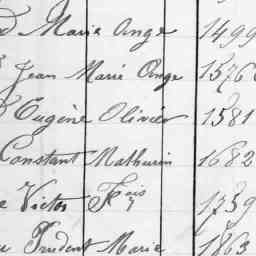 d Marie Ange 1499
Jean Marie Ange 1576
Eugène Olivier 1581
Constant Mathurin 1682
e Victor Fçois 1739
u Prudent Marie 1863